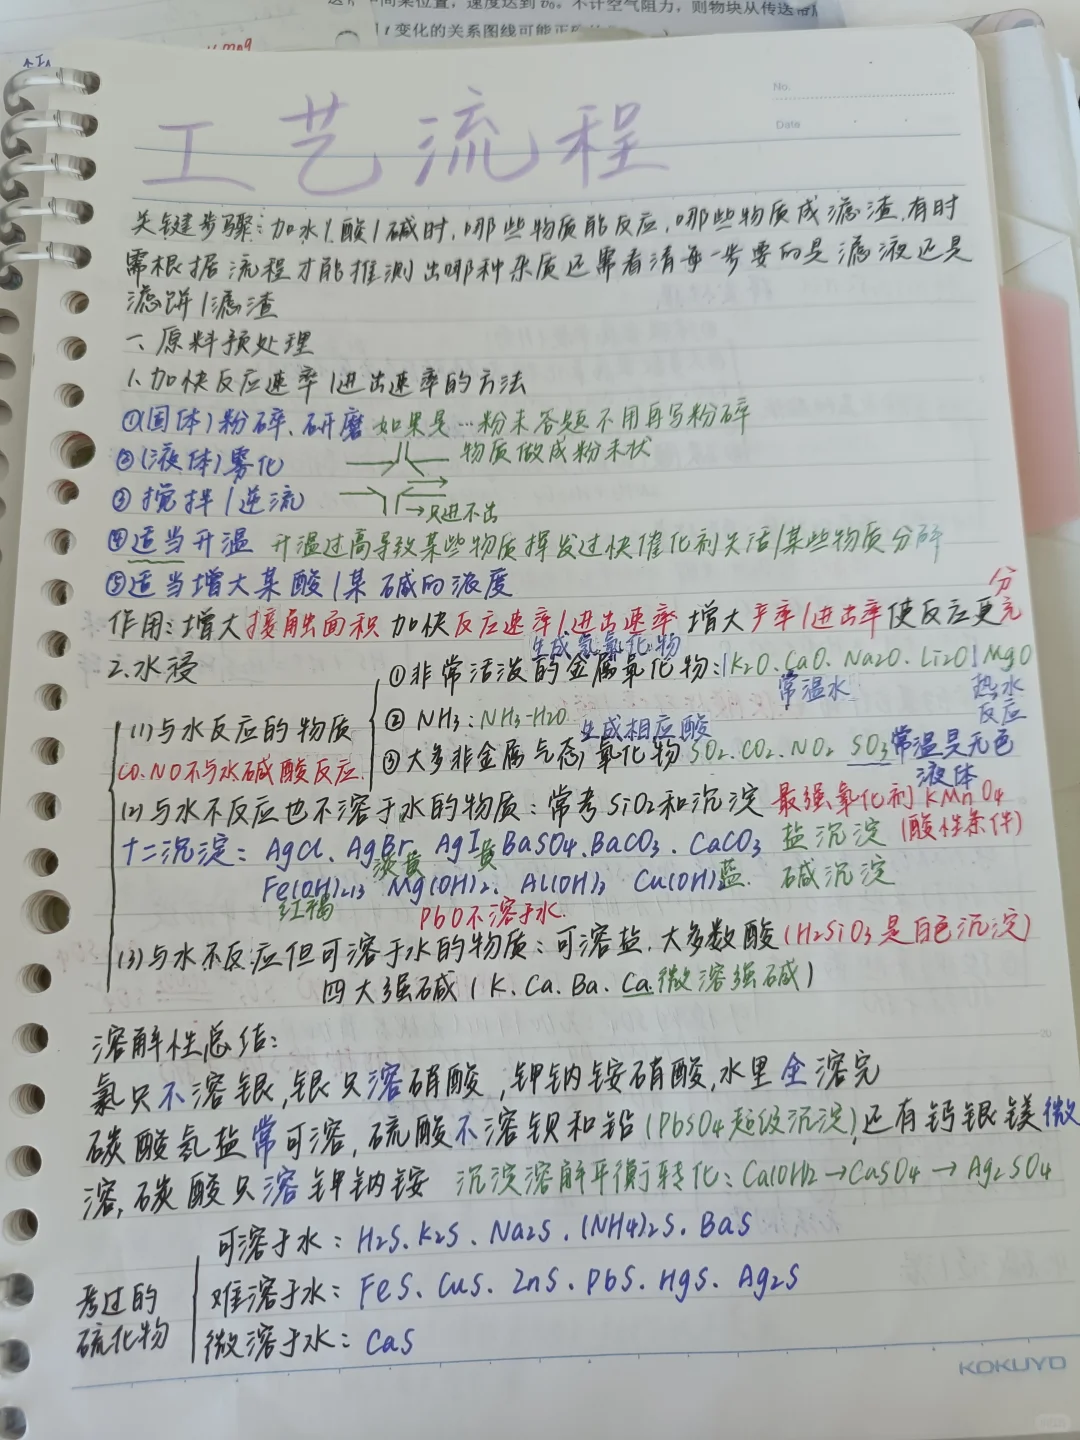 中间某位置，速度达到v₀。不计空气阻力，则物块从传送带
t变化的关系图线可能正
No.
Date
工艺流程
关键步骤：加水/酸/碱时，哪些物质能反应，哪些物质成滤渣，有时
需根据流程才能推测出哪种杂质还需看清每一步要的是滤液还是
滤饼/滤渣
一、原料预处理
1、加快反应速率/进出速率的方法
①(固体)粉碎、研磨 如果是…粉末答题不用再写粉碎
②(液体)雾化 物质做成粉末状
③搅拌/逆流 →只进不出
④适当升温 升温过高导致某些物质挥发过快催化剂失活/某些物质分解
⑤适当增大某酸/某碱的浓度
作用：增大接触面积 加快反应速率/进出速率 增大产率/进出率使反应更充分
2.水浸
生成氢氧化物
①非常活泼的金属氧化物：|K2O、CaO、Na2O、Li2O|MgO
常温水 热水反应
(1)与水反应的物质
②NH3：NH3·H2O
生成相应酸
CO、NO不与水碱酸反应.
③大多非金属气态氧化物 SO2、CO2、NO2 SO3常温是无色液体
(2)与水不反应也不溶于水的物质：常考SiO2和沉淀 最强氧化剂KMnO4
(酸性条件)
十二沉淀：AgCl、AgBr淡黄 AgI黄 BaSO4、BaCO3、CaCO3 盐沉淀
Fe(OH)2/3 Mg(OH)2、Al(OH)3 Cu(OH)2蓝. 碱沉淀
红褐 PbO不溶于水.
(3)与水不反应但可溶于水的物质：可溶盐、大多数酸(H2SiO3是白色沉淀)
四大强碱(K、Ca、Ba、Ca:微溶强碱)
溶解性总结：
氯只不溶银,银只溶硝酸,钾钠铵硝酸,水里全溶完
碳酸氢盐常可溶,硫酸不溶钡和铅(PbSO4超级沉淀),还有钙银镁微
溶,碳酸只溶钾钠铵 沉淀溶解平衡转化：Ca(OH)2→CaSO4→Ag2SO4
可溶于水：H2S、K2S、Na2S、(NH4)2S、BaS
考过的
硫化物
难溶于水：FeS、CuS、ZnS、PbS、HgS、Ag2S
微溶于水：CaS
KOKUYO